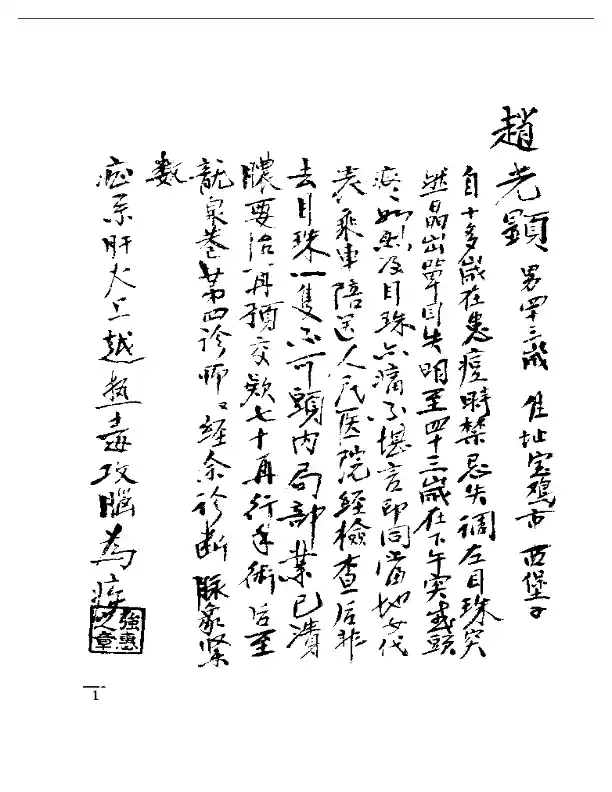 趙光顕 男 四十三歲 住址宝鸡市西堡子
自十多歲在患痘時禁忌失調左目珠突
然晶出翚目失明至四十三歲在下午突或頭
疼如劇及目珠亦痛不堪言即同當地女代
表乘車陪送人民医院經檢查后非
去目珠一隻不可頭内局部業已潰
膿要治再預交欵七十再行手術后至
龍泉巷第四診所經余診断脉象緊
数
症系肝火上越热毒攻腦為疾
強惠之章
1